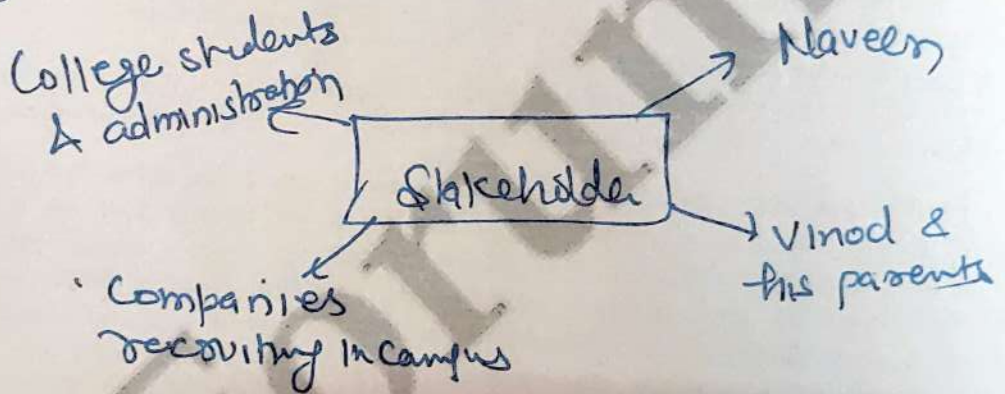 College students
& administration
Naveen
Stakeholder
Vinod &
his parents
Companies
recruiting in campus
Forum